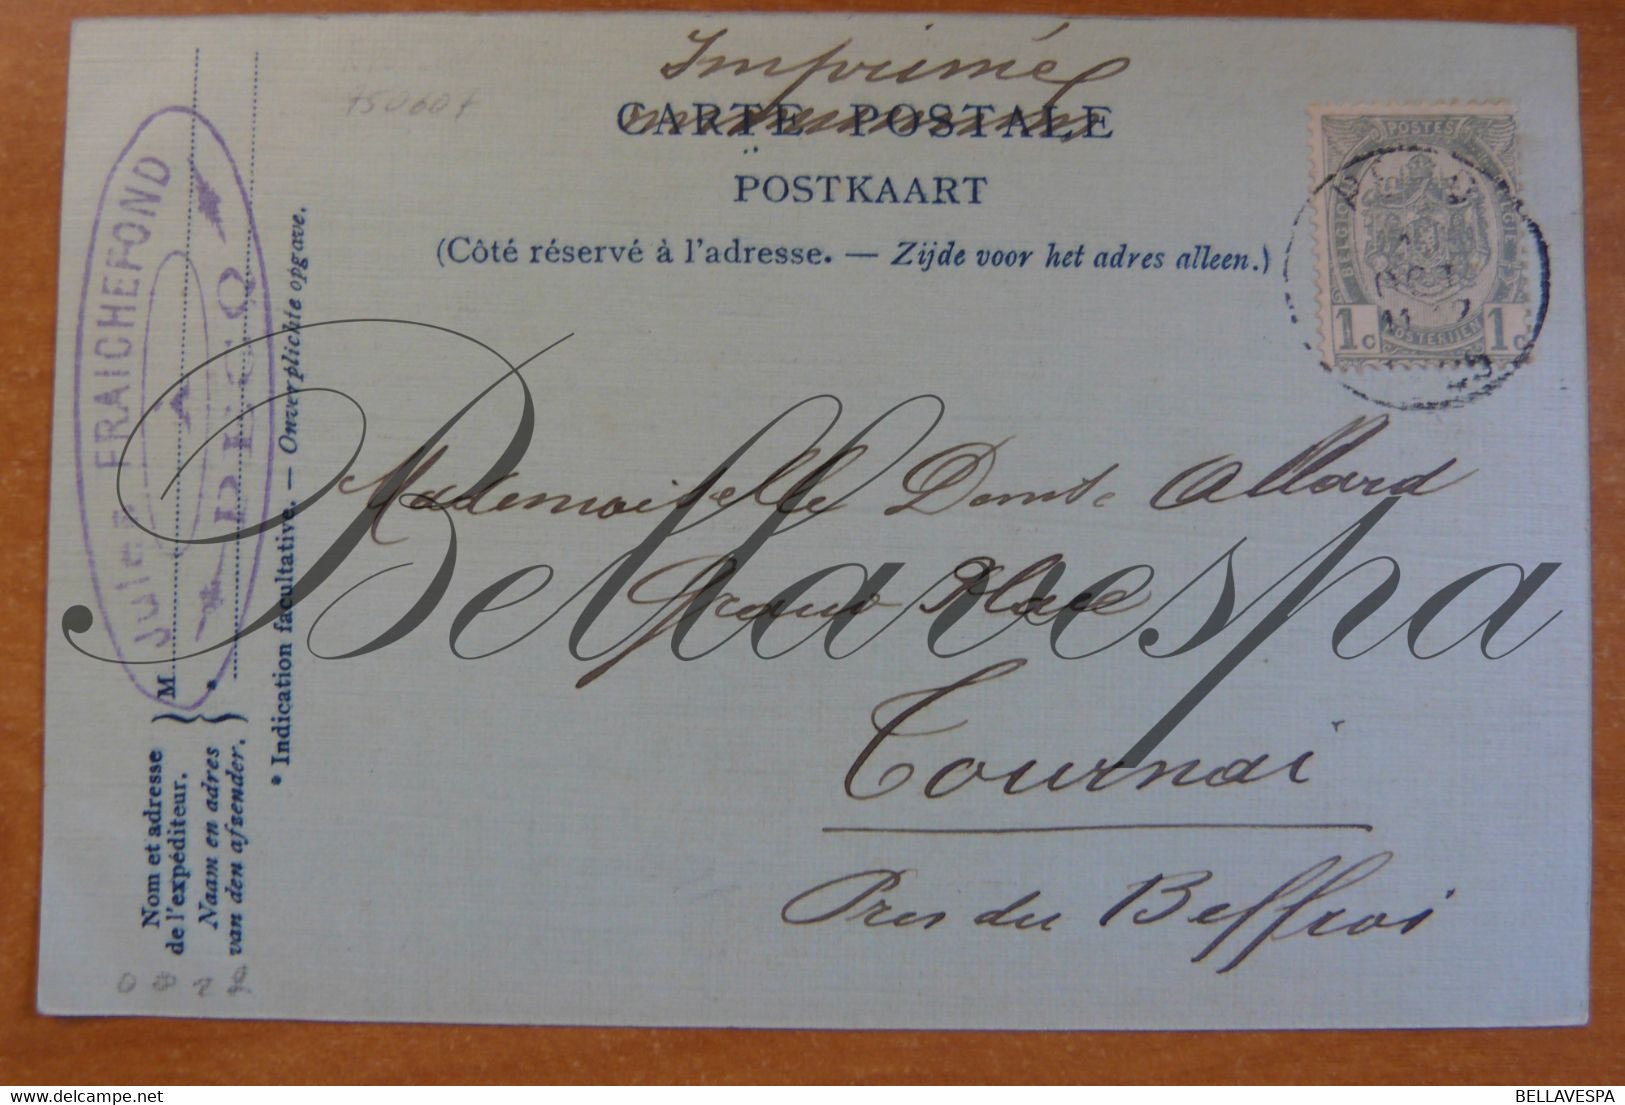 Imprimé
CARTE POSTALE
POSTKAART
(Côté réservé à l'adresse. — Zijde voor het adres alleen.)
POSTES
BELGIQUE
BELGIË
POSTERIJEN
1c 1c
Mademoiselle Allard
Grand Place
Tournai
Près du Beffroi
Jules FRAICHEFOND
A
M.
Nom et adresse
de l'expéditeur.
Naam en adres
van den afzender.
* Indication facultative. — Onverplichte opgave.
750607
Bellavespa
BELLAVESPA